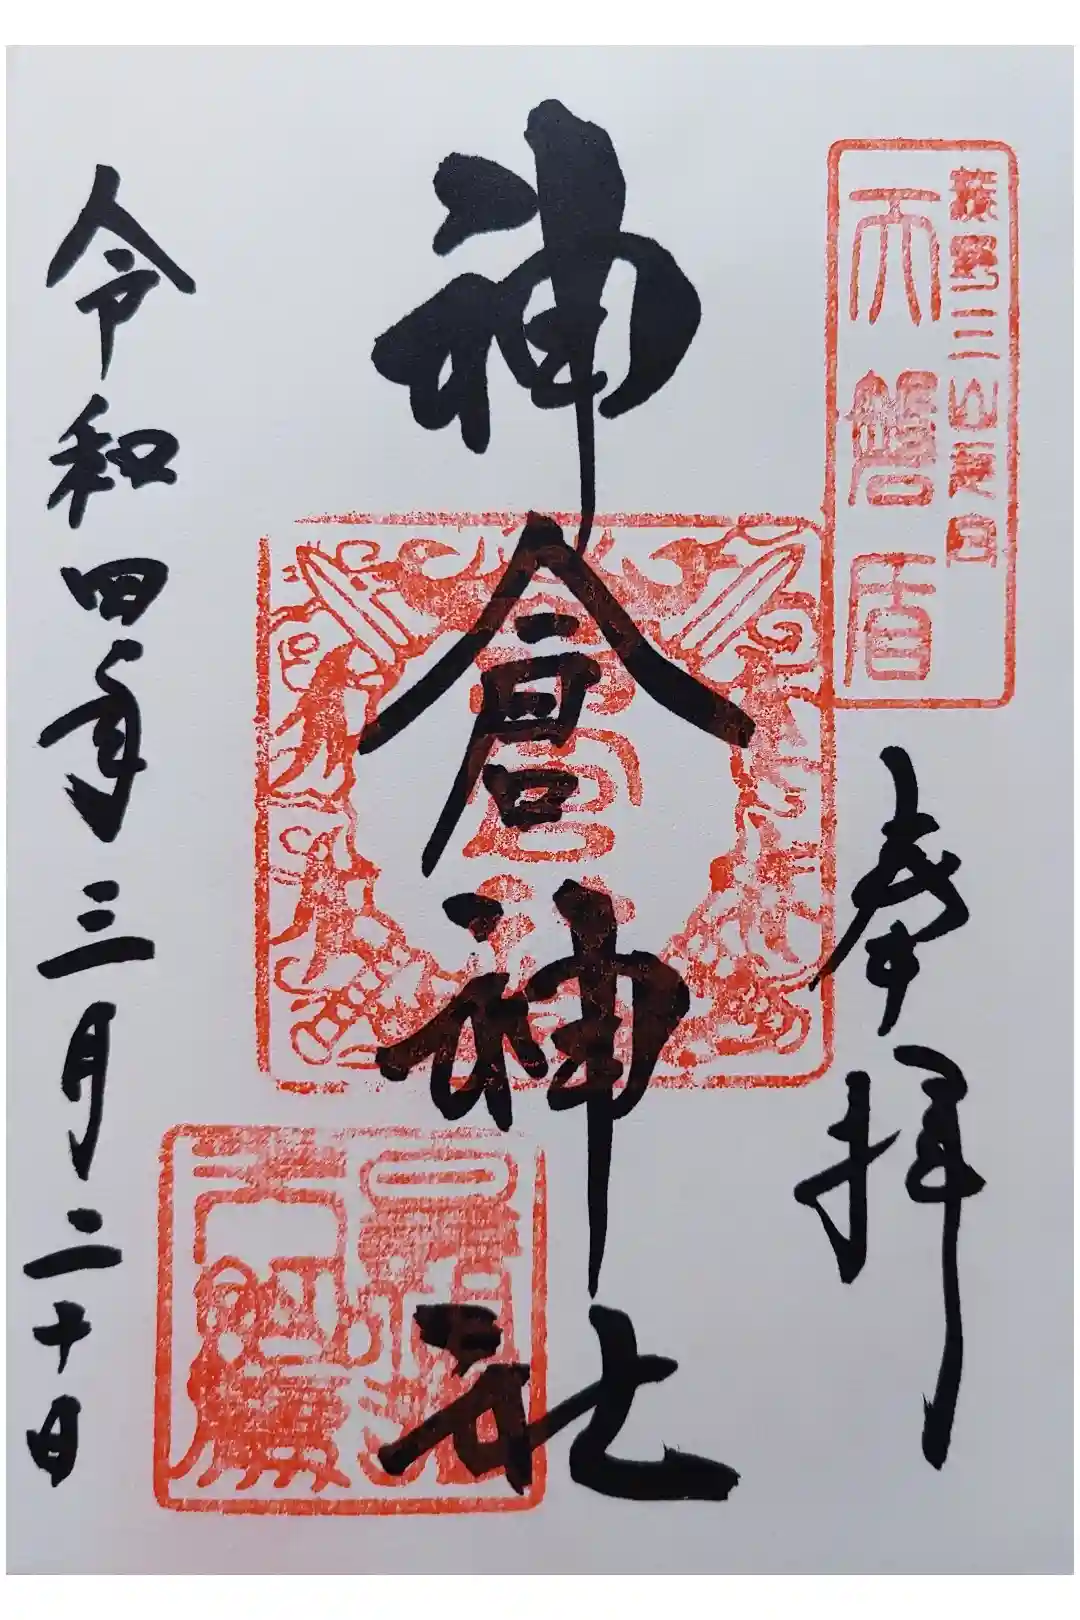 熊野三山元宮
天磐盾
奉拝
神倉神社
令和四年三月二十日